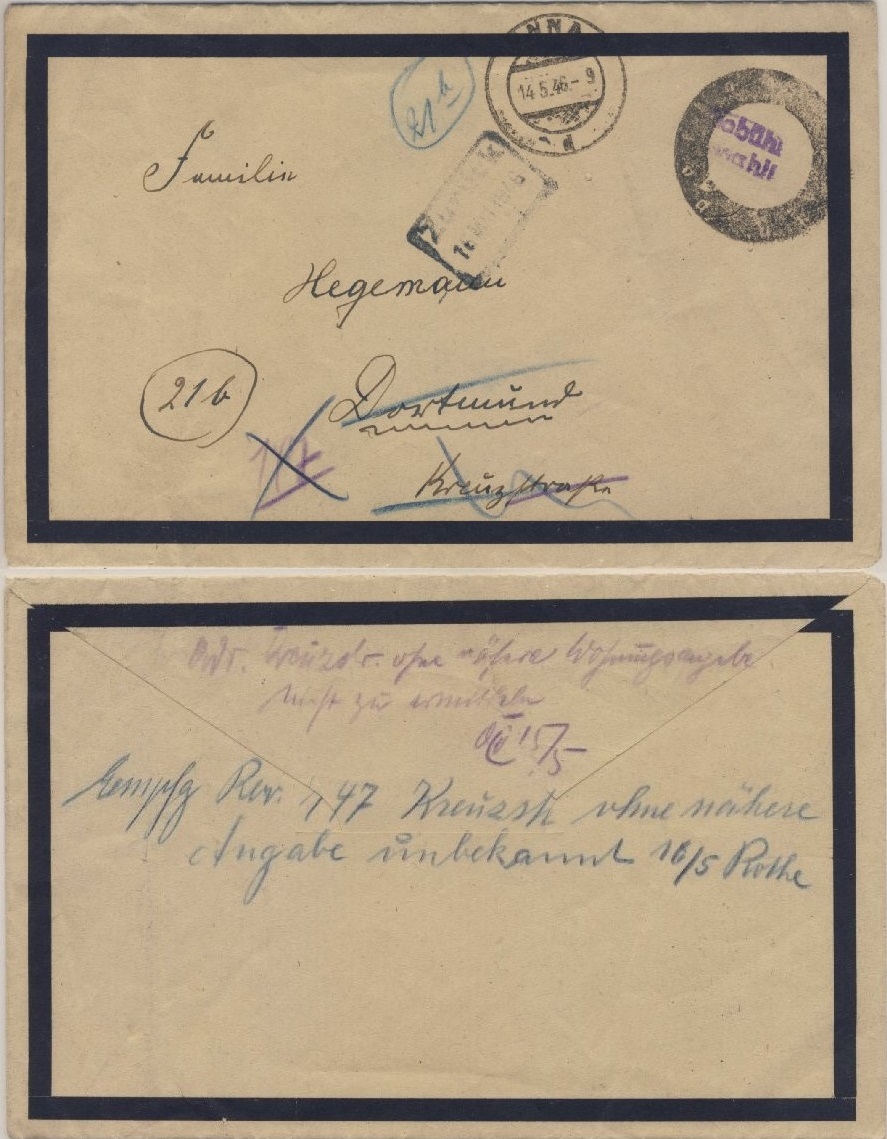 21b
NNA
14.5.46.-9
Zurück
Gebühr
Familie
Hegemann
21b
Dortmund
Kreuzstraße
Adr. Kreuzstr. ohne nähere Wohnungsangabe
nicht zu ermitteln
15/5
Empfg Rev. 47 Kreuzstr ohne nähere
Angabe unbekannt 16/5 Rothe